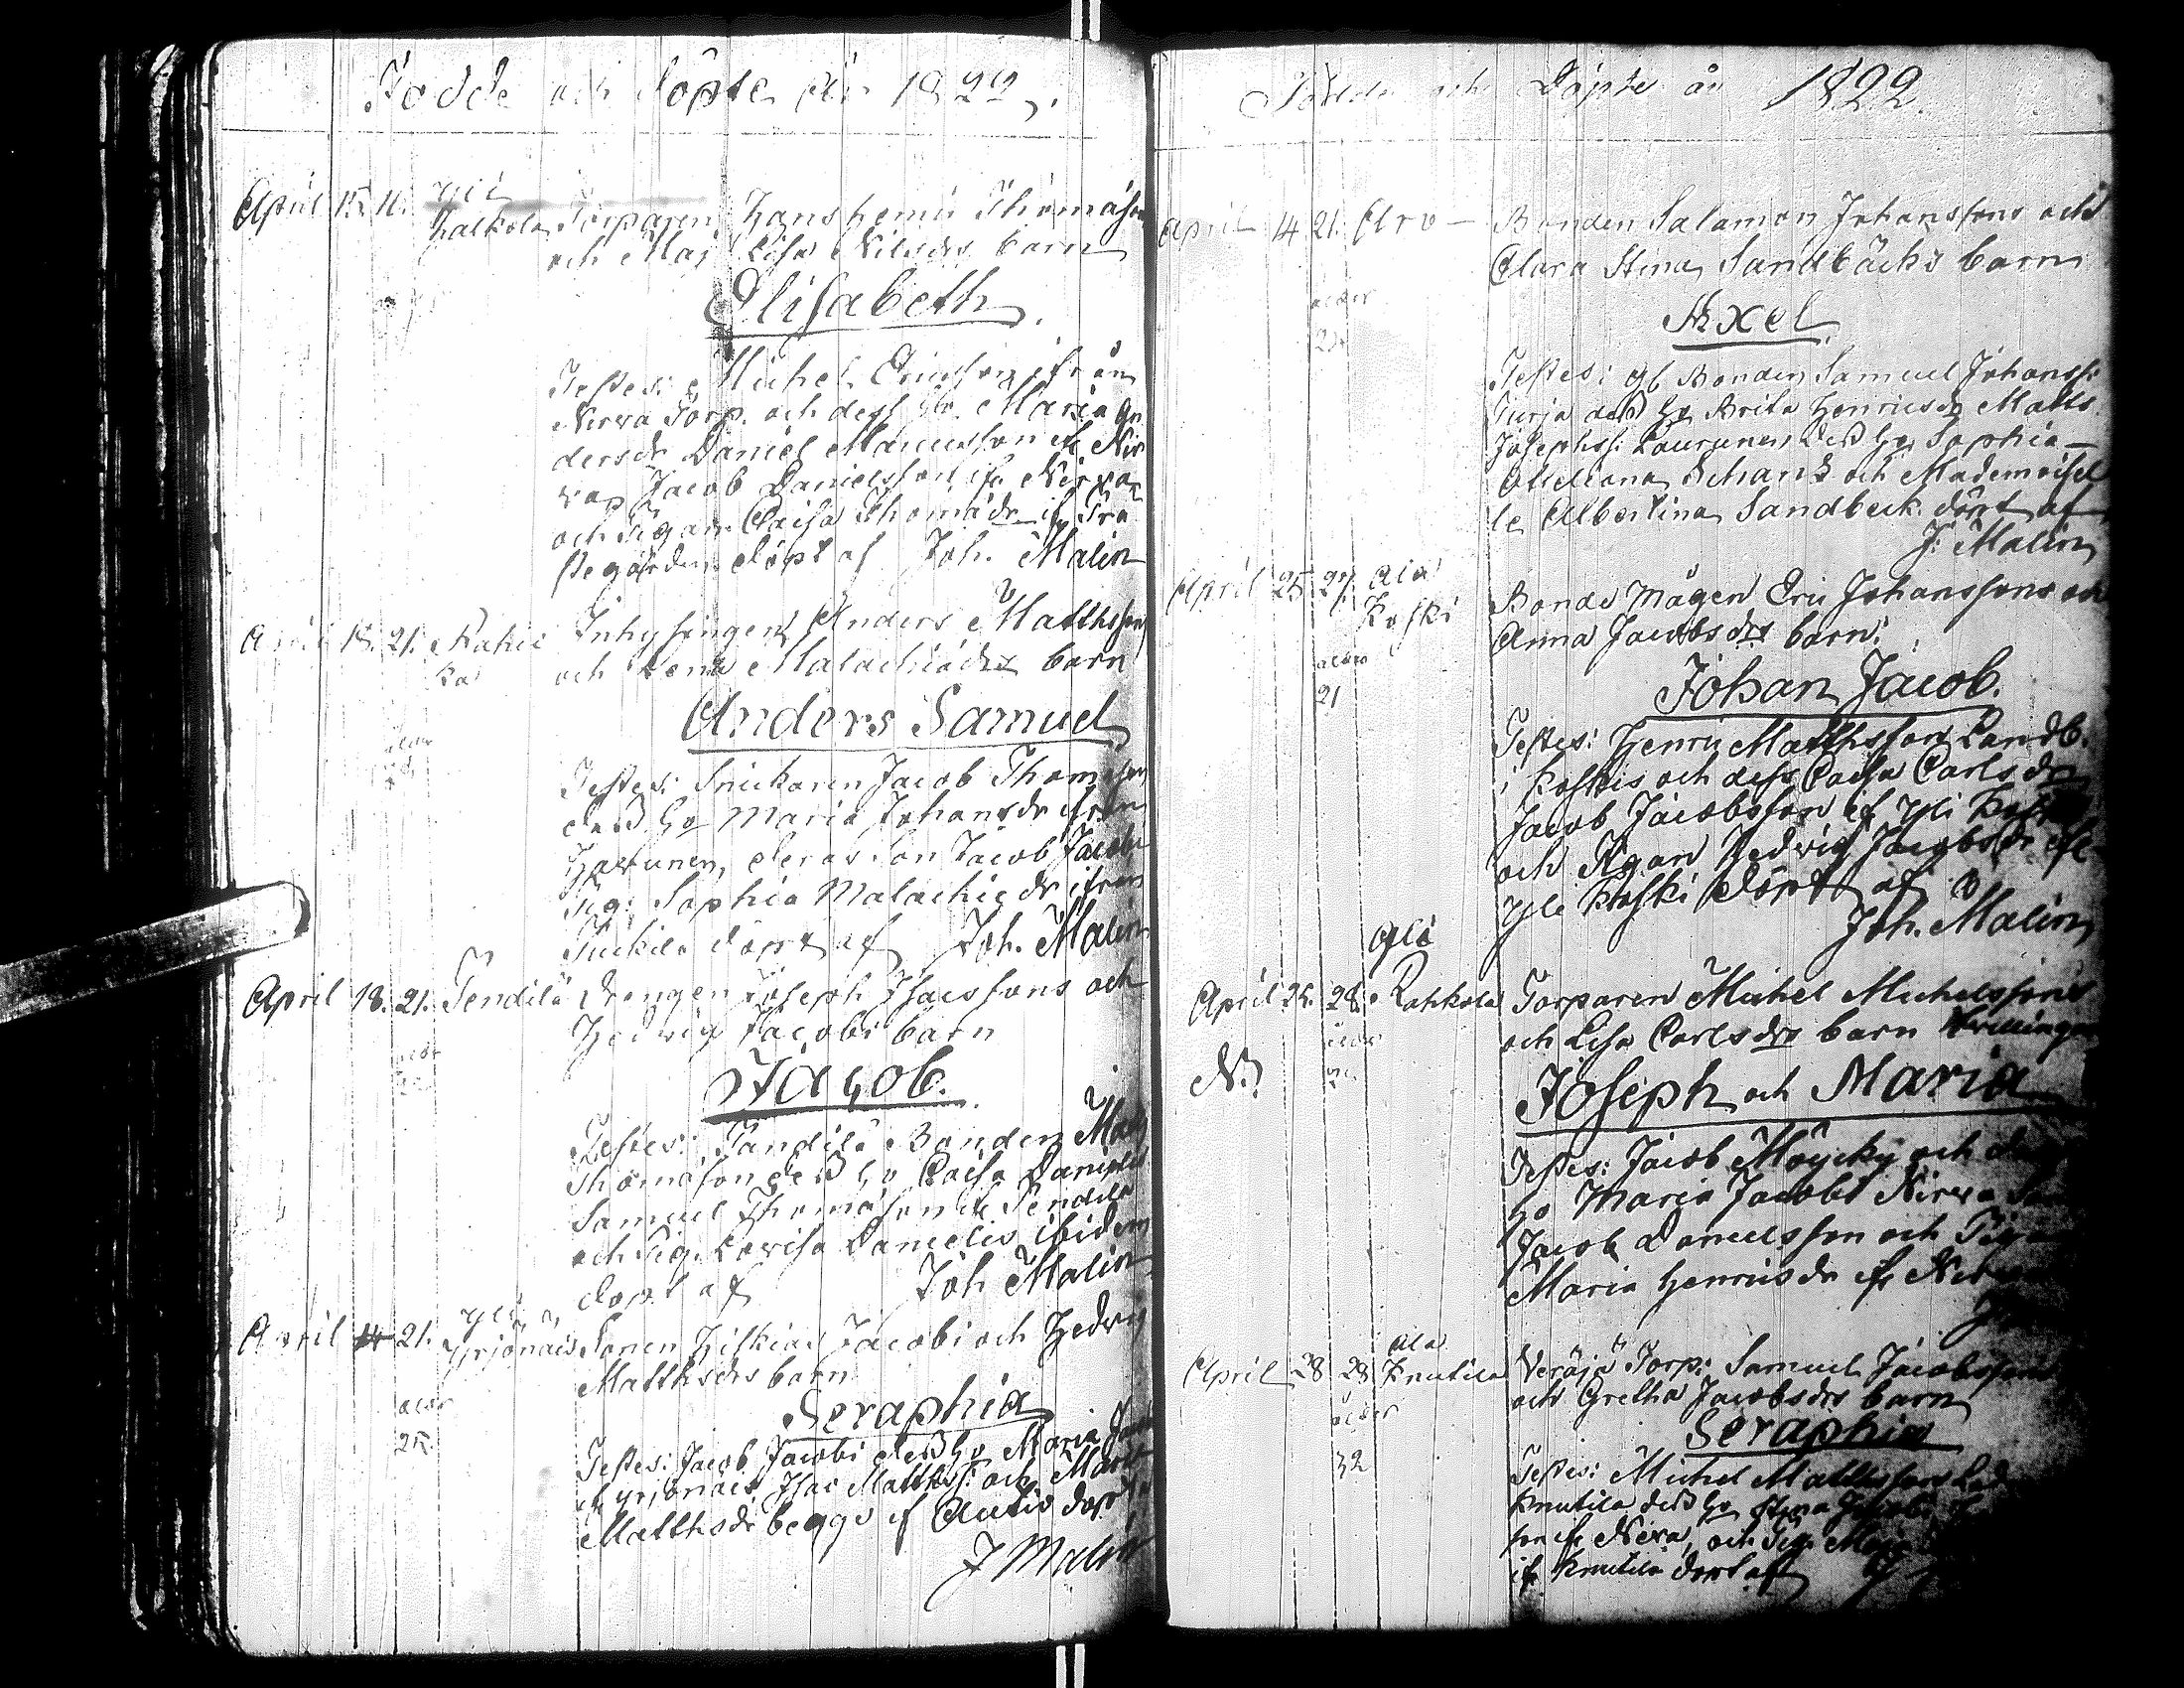 Födde och döpte år 1822.
April 15 16. Yli
Halkola Torparen Hans Henric Thomasson
och Maj Lisa Nilsdrs barn
Elisabeth
Testes: Michel Ericsson ifrån
Nirva Torp. och dess ho Maria An
dersdr Daniel Maricusson if. Nir
va, Jacob Danielsson ifr Nirva
och Pigan Caisa Thomædr if Prä
stegården döpt af Joh. Malin
April 21. Inhysingen Anders Matthsson
och Lena Malachiædrs barn
Anders Samuel
ålder
Testes: Snickaren Jacob Thomasson
dess ho Maria Johansdr ifrån
deras son Jacob Jacobs
Pig. Sophia Malachiædr ifrån
döpt af Joh. Malin
April 18. 21. Tendilä Drengen Joseph Isacssons och
Hedvig Jacobi barn
ålder
Jacob.
Testes: Tandilä Bonden Mats
Thomason dess ho Caisa Daniels
Samuel Thomason if Tendilä
och Pig. Lovisa Danielis ibidem
döpt af Joh Malin
April 14 21. Yli
Yrjönäis Sonen Hiskias Jacobi och Hedvig
Matthsdrs barn
Seraphia
ålder
25.
Testes: Jacob Jacobi dess ho Maria
if Yrjönäis Isac Matthss: och
Matthsdr begge if Autio döpt
J Malin
Födde och Döpte år 1822.
April 14 21. Arv— Bonden Salamon Johanssons och
Clara Stina Sandbäcks barn
ålder
Axel
Testes: gl Bonden Samuel Johanss:
dess ho Brita Henricsdr Matts
Josephss: Laurunen, dess ho Sophia—
och Mademoisel
le Albertina Sandbeck döpt af
J: Malin
April 25 27 Ala
Koski Bonde Mågen Eric Johanssons och
Anna Jacobsdrs barn:
ålder
21
Johan Jacob.
Testes: Henric Matthsson Landb.
i Koskis och dess Caisa Carlsdr
Jacob Jacobsson if Yli Koski
och Pigan Hedvig Jacobsdr if
Yli Koski döpt af
Joh. Malin
April 28. Yli
Rahkola Torparen Michel Michelssons
och Lisa Carlsdrs barn Tvillingar
ålder
N.
Joseph och Maria
Testes: Jacob Möycky och dess
ho Maria Jacobs Nirva
Jacob Danielsson och Pigan
Maria Henricsdr if
April 28 28 Ala
Knutila Torp: Samuel Jacobssons
och Gretha Jacobsdrs barn
ålder
32
Seraphia
Testes: Michel Matthsson
Knutila dess ho Stina
son if Nirva, och Pig. Maja
if Knutila döpt af